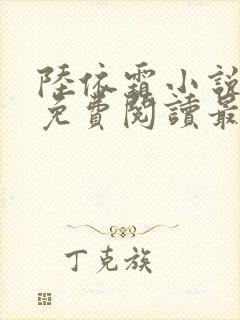 陸依霜小說
免費閱讀最
丁克族